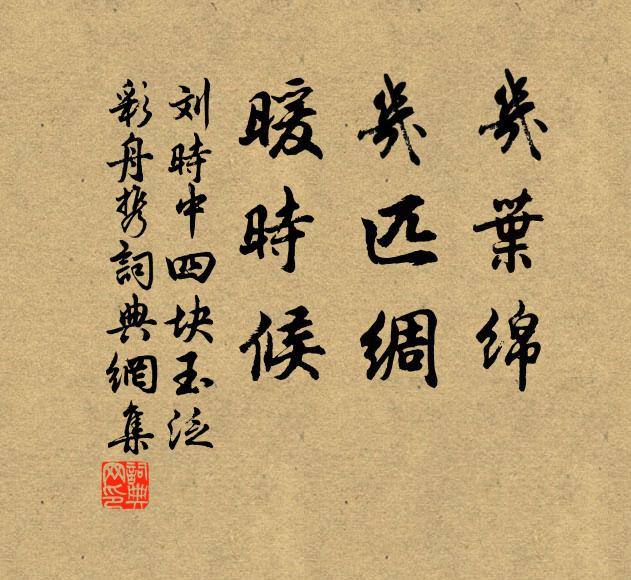 幾葉綿
幾匹綢
暖時候
刘時中四块玉泛
彩舟携詞典網集
詞典
网印